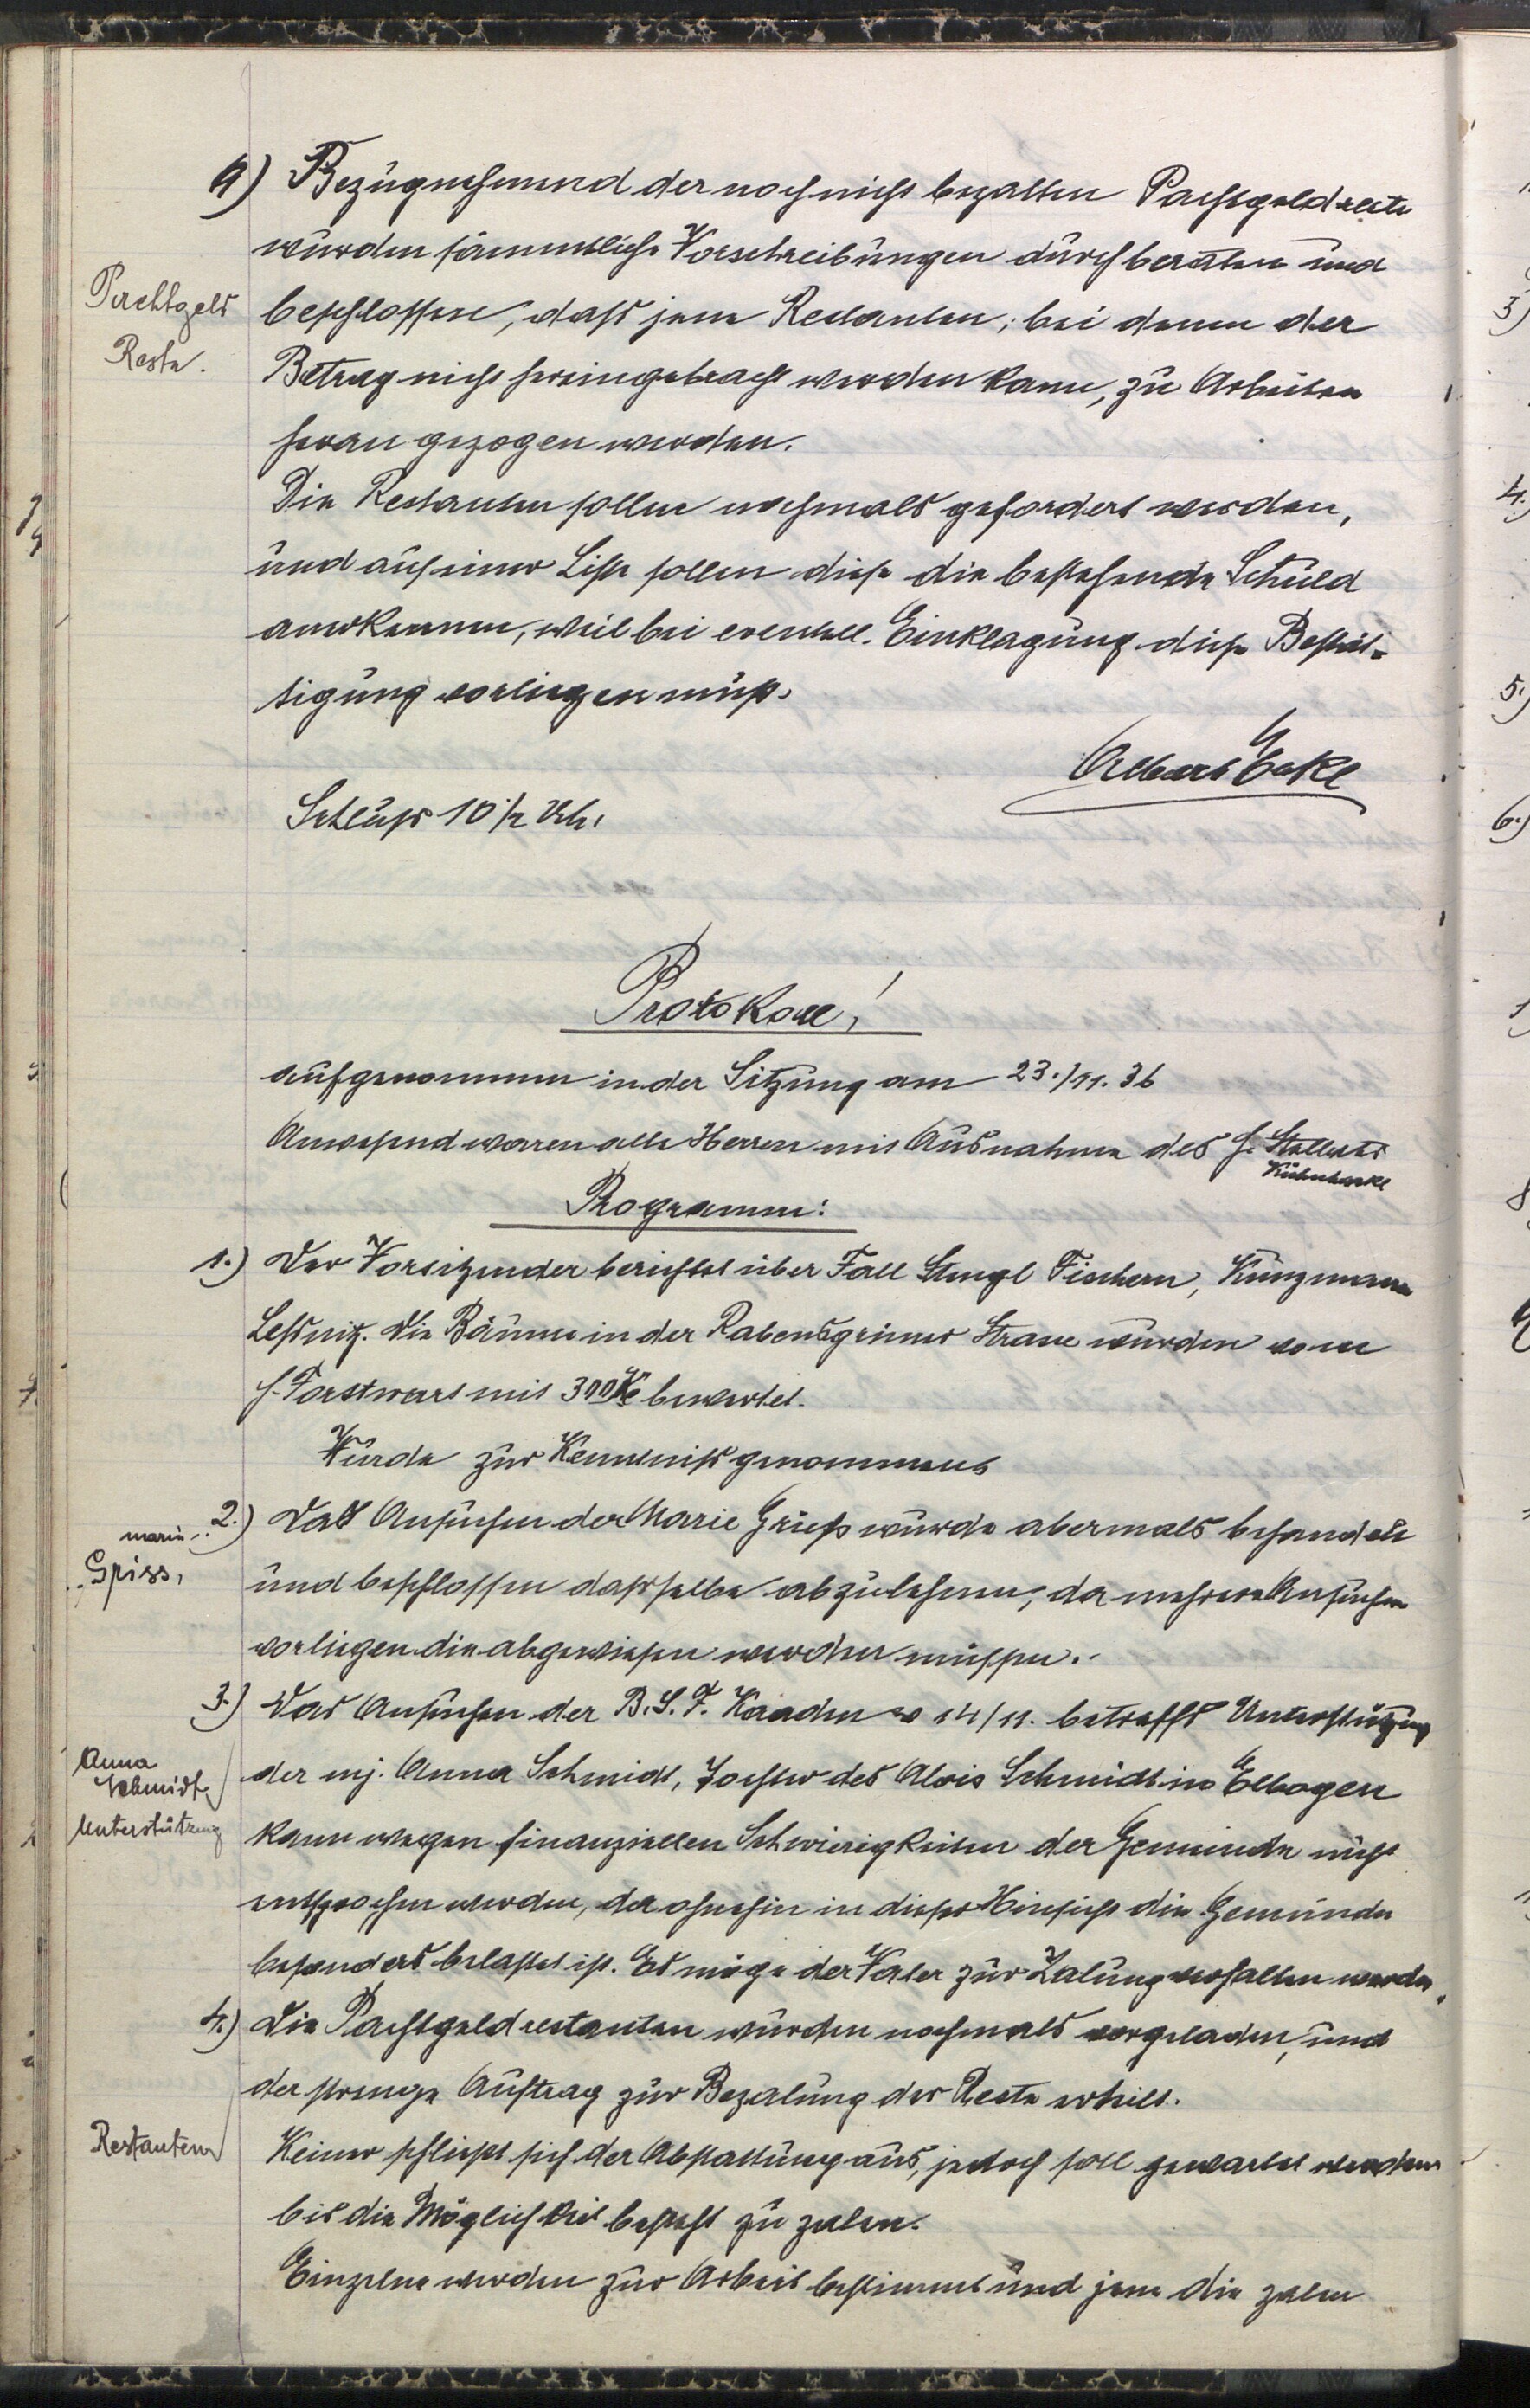 9) Bezugnehmend der noch nicht bezalten Pachtgeldreste
wurden sämmtliche Vorschreibungen durchberaten und
Pachtgeld
Reste.
beschlossen, dass jene Restanten, bei denen der
Betrag nicht hereingebracht werden kann, zu Arbeiten
heran gezogen werden.
Die Restanten sollen nochmals gefordert werden,
und auf einer Liste sollen diese die bestehende Schuld
anerkennen, weil bei eventuell. Einklagung diese Bestät-
tigung vorliegen muß.
Albert
Schluss 10 ½ Uhr.
Protokoll!
aufgenommen in der Sitzung am 23./11.36
Anwesend waren alle Herren mit Ausnahme des H.
Programm:
1.) Der Vorsitzender berichtet über Fall Stengl Fischern, Künzmann
Lessnitz. Die Bäume in der Rabensgrüner Strasse wurden vom
H. Forstwart mit 300 Kč bewertet.
Wurde zur Kenntniss genommen
marie
Griss,
2.) Das Ansuchen der Marie Grieß wurde abermals behandelt
und beschlossen dasselbe abzulehnen, da mehrere Ansuchen
vorliegen die abgewiesen werden müssen.
3.) Das Ansuchen der B. J. F. Kaaden v 14/11. betreffs Unterstützung
Anna
Schmidt
Unterstützung
der mj. Anna Schmidt, Tochter des Alois Schmidt in Elbogen
kann wegen finanziellen Schwierigkeiten der Gemeinde nicht
entsprochen werden, da ohnehin in dieser Hinsicht die Gemeinde
besonders belastet ist. Es möge der Vater zur Zalung verhalten werden.
4.) Die Pachtgeldrestanten wurden nochmals vorgeladen, und
der strenge Auftrag zur Bezalung der Reste erteilt.
Restanten
Keiner schliesst sich der Abstattung aus, jedoch soll gewartet werden
bis die Möglichkeit besteht zu zalen.
Einzelne werden zur Arbeit bestimmt und jene die zalen